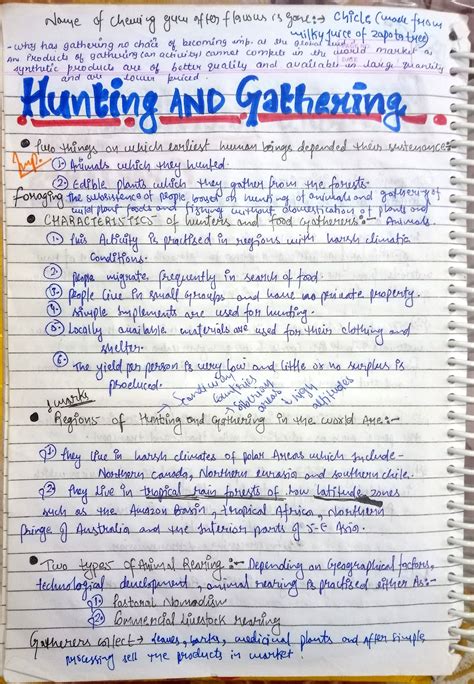 Name of chewing gum after flavour is gone:→ Chicle (made from
milky juice of zapota tree)
- why has gathering no chance of becoming imp. at the global level
Ans Products of gathering (an activity) cannot compete in the world market as
synthetic products are of better quality and available in large quantity
and are lower priced.
DATE
Hunting AND Gathering
• Two things on which earliest human beings depended their sustenance:-
Imp.
(1) Animals which they hunted.
(2) Edible plants which they gather from the forests.
foraging: The subsistence of people based on hunting of animals and gathering of
wild plant foods and fishing without domestication of plants and
animals.
• CHARACTERISTICS of hunters and food Gatherers:-
(1) This Activity is practised in regions with harsh climatic
Conditions.
(2) People migrate frequently in search of food.
(3) People live in small groups and have no private property.
(4) Simple implements are used for hunting.
(5) Locally available materials are used for their clothing and
shelter.
(6) The yield per person is very low and little or no surplus is
produced.
countries
areas
high
altitudes
marks
• Regions of Hunting and Gathering in the world Are:-
(1) They live in harsh climates of polar Areas which include -
Northern Canada, Northern eurasia and southern chile.
(2) They live in tropical rain forests of low latitude zones
such as the Amazon Basin, Tropical Africa, Northern
fringe of Australia and the interior parts of S-E Asia.
• Two types of Animal Rearing:- Depending on Geographical factors,
technological development, animal rearing is practised either As:-
(1) Pastoral Nomadism
(2) Commercial livestock rearing
Gatherers collect → leaves, barks, medicinal plants and after simple
processing sell the products in market.